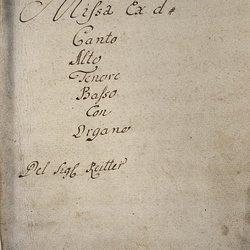 Missa Ex d#
Canto
Alto
Tenore
Basso
Con
Organo
Del Sigl Reitter